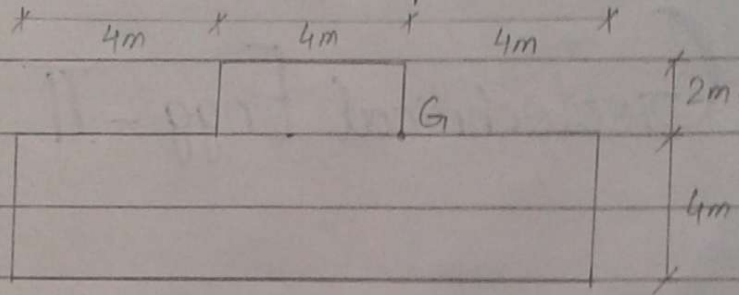 4m 4m 4m
2m
G
4m